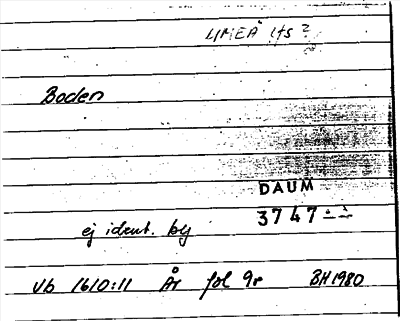 UMEÅ lfs?
Boden
DAUM
3747
ej ident. by
Vb 1610:11 År fol 9r BH 1980